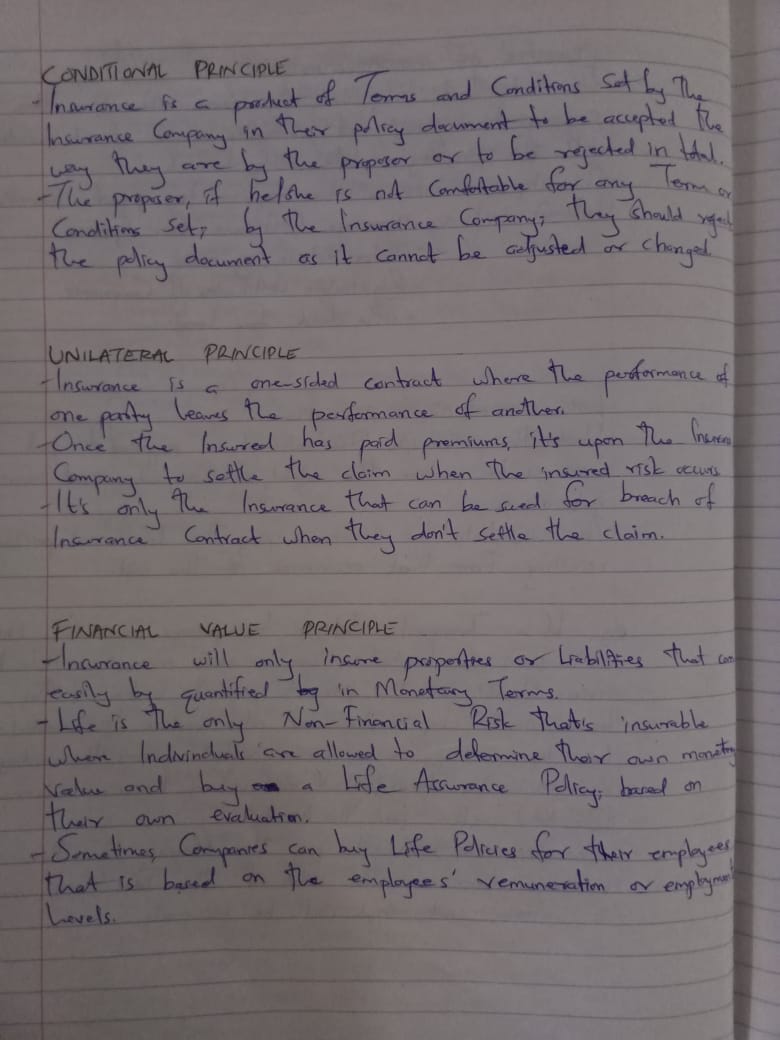 CONDITIONAL PRINCIPLE
- Insurance is a product of Terms and Conditions set by the
Insurance Company in their policy document to be accepted the
way they are by the proposer or to be rejected in total.
- The proposer, if he/she is not comfortable for any Term or
Conditions set, by the Insurance Company, they should reject
the policy document as it cannot be adjusted or changed
UNILATERAL PRINCIPLE
- Insurance is a one-sided contract where the performance of
one party leaves the performance of another.
- Once the Insured has paid premiums, it's upon the
Company to settle the claim when the insured risk occurs
- It's only the Insurance that can be sued for breach of
Insurance Contract when they don't settle the claim.
FINANCIAL VALUE PRINCIPLE
- Insurance will only insure properties or Liabilities that can
easily by quantified in Monetary Terms.
- Life is the only Non-Financial Risk that's insurable
where Individuals are allowed to determine their own monetry
value and buy a Life Assurance Policy, based on
their own evaluation.
- Sometimes, Companies can buy Life Policies for their employees
that is based on the employees' remuneration or employment
Levels.